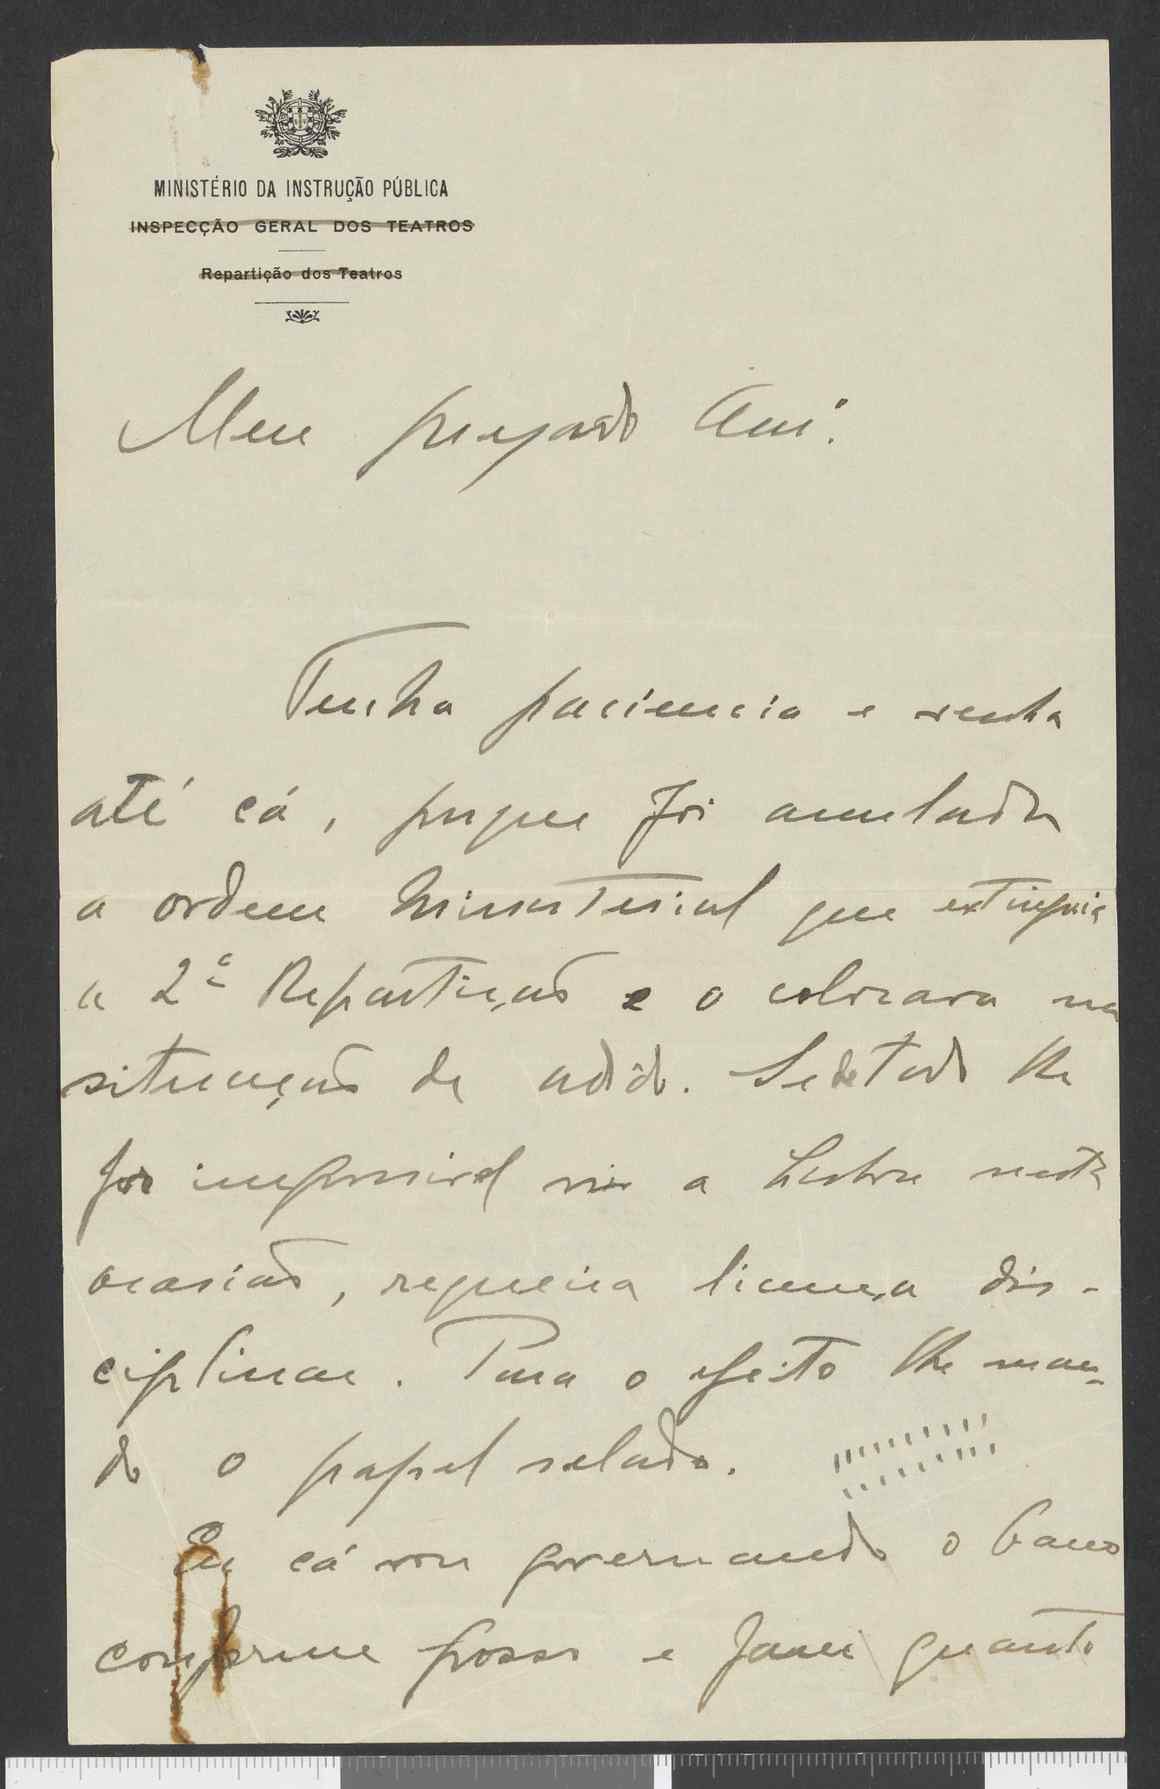 MINISTÉRIO DA INSTRUÇÃO PÚBLICA
INSPECÇÃO GERAL DOS TEATROS
Repartição dos Teatros
Meu presado Am.º
Tenha paciencia e venha
até cá, porque foi anulada
a ordem Ministerial que extinguia
a 2ª Repartição e o colocava na
situação de adido. Se de todo lhe
for impossivel vir a Lisboa nesta
ocasião, requeira licença dis-
ciplinar. Para o efeito lhe man-
do o papel selado.
Eu cá vou governando o barco
conforme posso e farei quanto